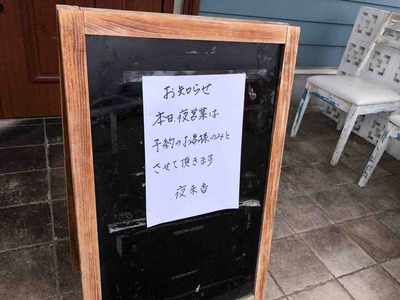 お知らせ
本日、夜営業は
予約のお客様のみと
させて頂きます
夜来香